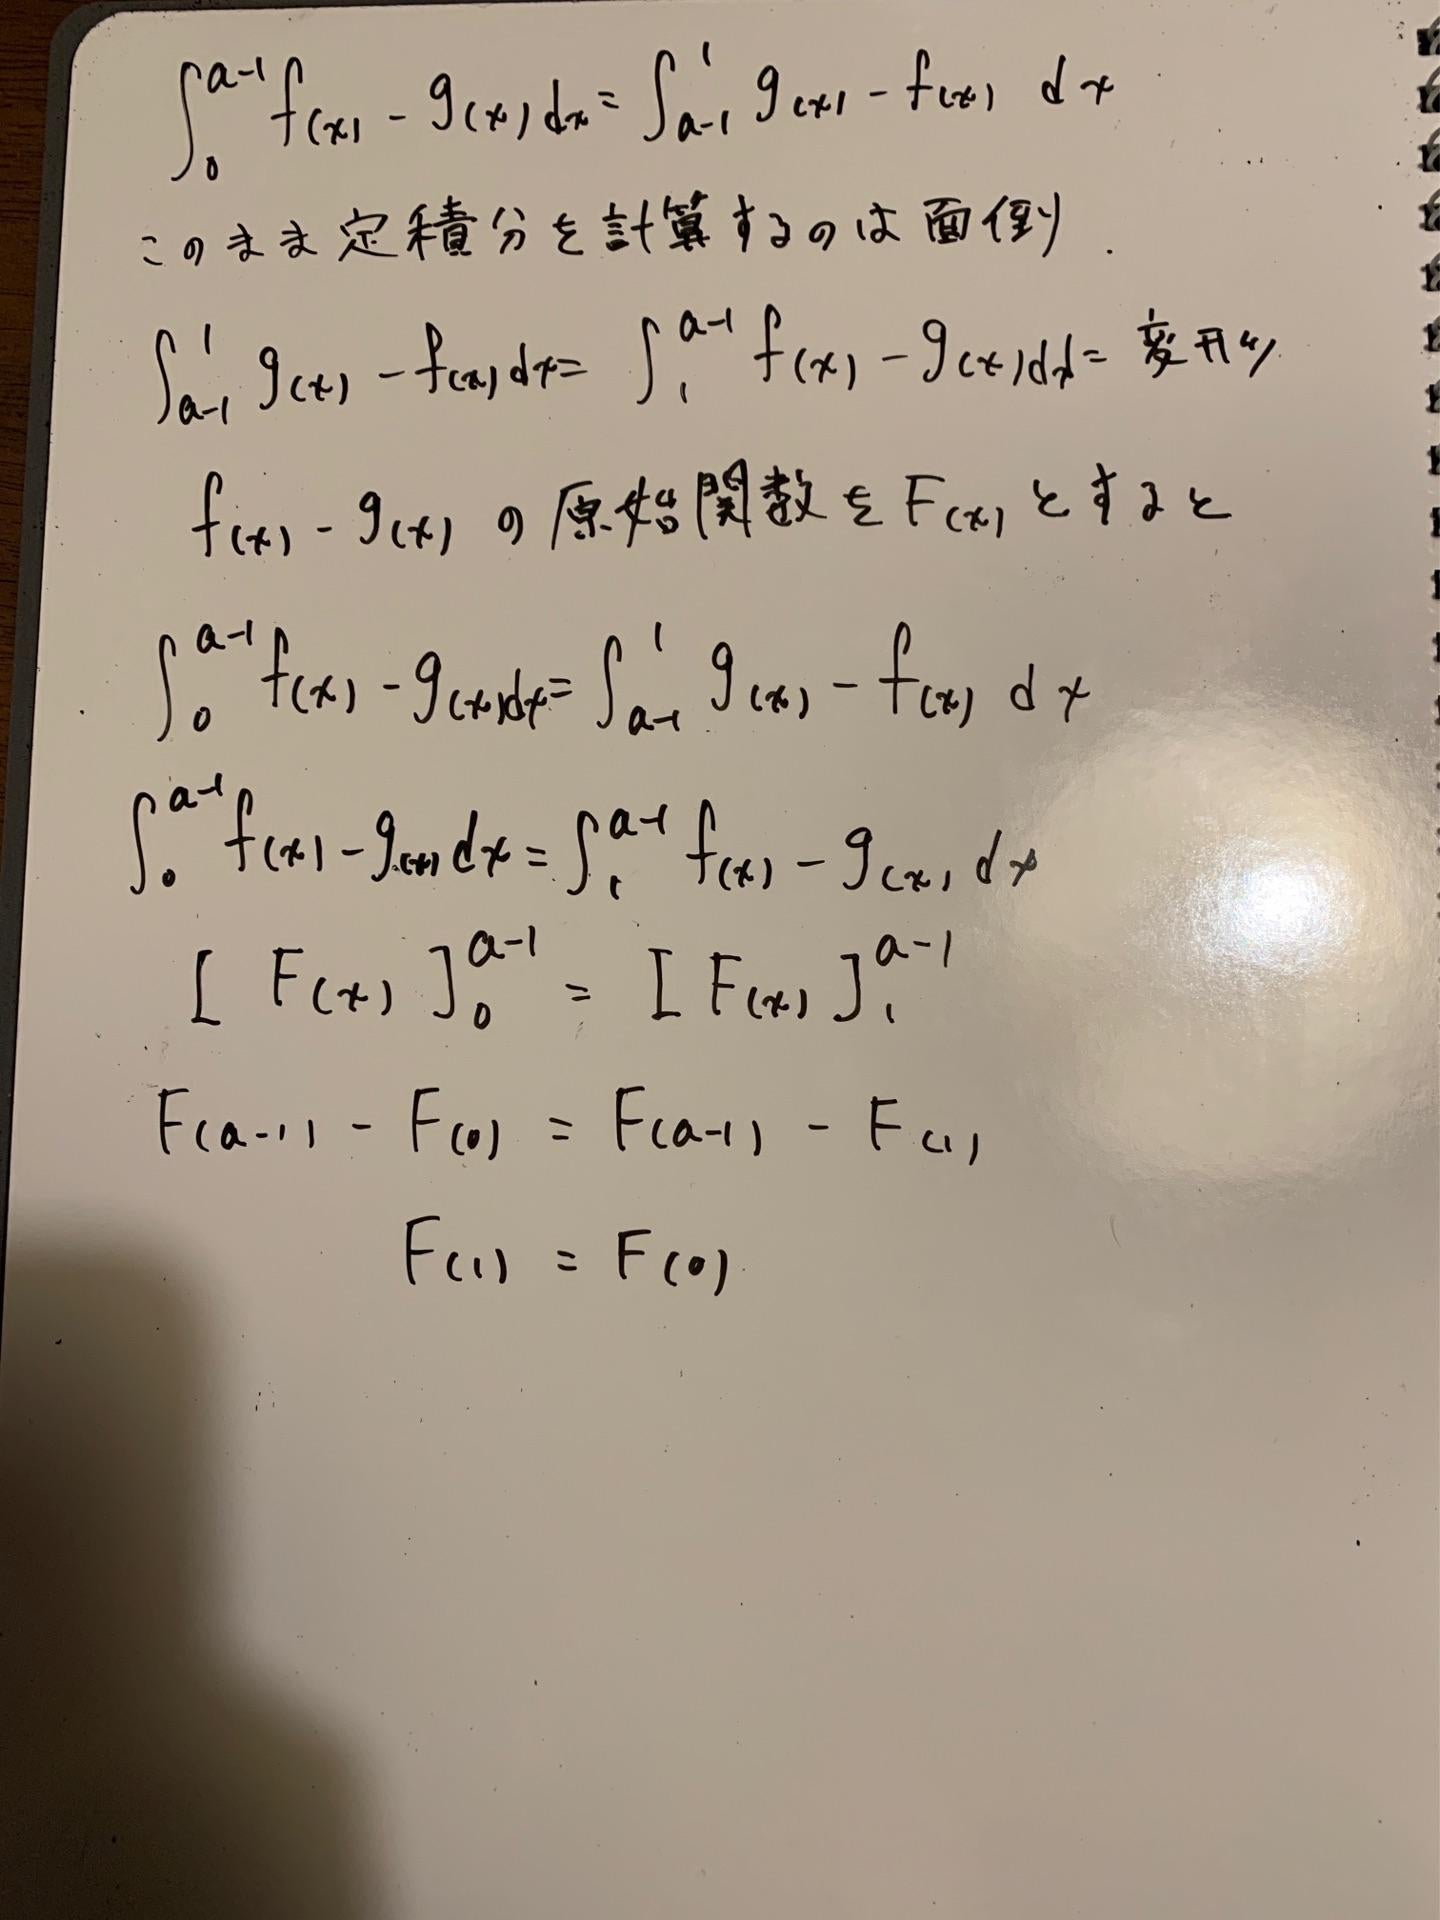 ∫₀^{a-1} f(x) - g(x) dx = ∫_{a-1}^{1} g(x) - f(x) dx
このまま定積分を計算するのは面倒
∫_{a-1}^{1} g(x) - f(x) dx = ∫_{1}^{a-1} f(x) - g(x) dx = 変形し
f(x) - g(x) の原始関数を F(x) とすると
∫₀^{a-1} f(x) - g(x) dx = ∫_{a-1}^{1} g(x) - f(x) dx
∫₀^{a-1} f(x) - g(x) dx = ∫_{1}^{a-1} f(x) - g(x) dx
[ F(x) ]₀^{a-1} = [ F(x) ]₁^{a-1}
F(a-1) - F(0) = F(a-1) - F(1)
F(1) = F(0)